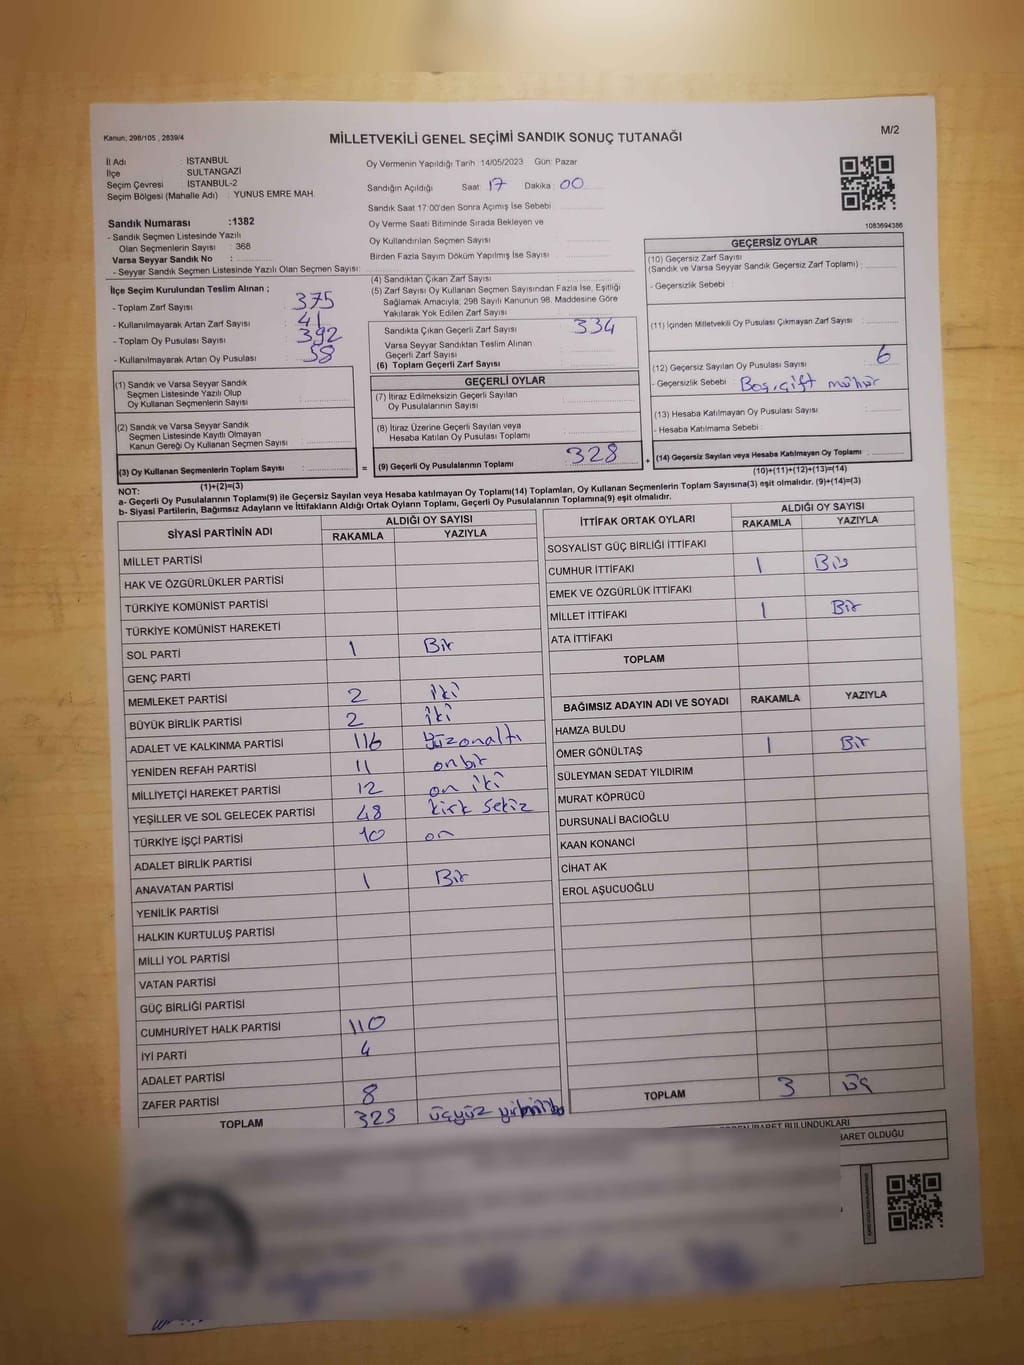 Kanun; 298/105 , 2839/4
MİLLETVEKİLİ GENEL SEÇİMİ SANDIK SONUÇ TUTANAĞI
M/2
İl Adı : İSTANBUL
İlçe : SULTANGAZİ
Seçim Çevresi : İSTANBUL-2
Seçim Bölgesi (Mahalle Adı) : YUNUS EMRE MAH.
Oy Vermenin Yapıldığı Tarih : 14/05/2023 Gün: Pazar
Sandığın Açıldığı Saat: 17 Dakika : 00
Sandık Saat 17:00'den Sonra Açılmış İse Sebebi :
Oy Verme Saati Bitiminde Sırada Bekleyen ve
Oy Kullandırılan Seçmen Sayısı :
Birden Fazla Sayım Döküm Yapılmış İse Sayısı :
1083694386
Sandık Numarası :1382
- Sandık Seçmen Listesinde Yazılı
Olan Seçmenlerin Sayısı : 368
Varsa Seyyar Sandık No :
- Seyyar Sandık Seçmen Listesinde Yazılı Olan Seçmen Sayısı:
İlçe Seçim Kurulundan Teslim Alınan ;
- Toplam Zarf Sayısı : 375
- Kullanılmayarak Artan Zarf Sayısı : 41
- Toplam Oy Pusulası Sayısı : 392
- Kullanılmayarak Artan Oy Pusulası : 58
(1) Sandık ve Varsa Seyyar Sandık
Seçmen Listesinde Yazılı Olup
Oy Kullanan Seçmenlerin Sayısı :
(2) Sandık ve Varsa Seyyar Sandık
Seçmen Listesinde Kayıtlı Olmayan
Kanun Gereği Oy Kullanan Seçmen Sayısı :
(3) Oy Kullanan Seçmenlerin Toplam Sayısı :
(1)+(2)=(3)
(4) Sandıktan Çıkan Zarf Sayısı :
(5) Zarf Sayısı Oy Kullanan Seçmen Sayısından Fazla İse, Eşitliği
Sağlamak Amacıyla; 298 Sayılı Kanunun 98. Maddesine Göre
Yakılarak Yok Edilen Zarf Sayısı :
Sandıkta Çıkan Geçerli Zarf Sayısı : 334
Varsa Seyyar Sandıktan Teslim Alınan
Geçerli Zarf Sayısı :
(6) Toplam Geçerli Zarf Sayısı :
GEÇERLİ OYLAR
(7) İtiraz Edilmeksizin Geçerli Sayılan
Oy Pusulalarının Sayısı :
(8) İtiraz Üzerine Geçerli Sayılan veya
Hesaba Katılan Oy Pusulası Toplamı :
= (9) Geçerli Oy Pusulalarının Toplamı : 328 +
GEÇERSİZ OYLAR
(10) Geçersiz Zarf Sayısı
(Sandık ve Varsa Seyyar Sandık Geçersiz Zarf Toplamı) :
- Geçersizlik Sebebi :
(11) İçinden Milletvekili Oy Pusulası Çıkmayan Zarf Sayısı :
(12) Geçersiz Sayılan Oy Pusulası Sayısı : 6
- Geçersizlik Sebebi : Boş, çift mühür
(13) Hesaba Katılmayan Oy Pusulası Sayısı :
- Hesaba Katılmama Sebebi :
(14) Geçersiz Sayılan veya Hesaba Katılmayan Oy Toplamı :
(10)+(11)+(12)+(13)=(14)
NOT:
a- Geçerli Oy Pusulalarının Toplamı(9) ile Geçersiz Sayılan veya Hesaba katılmayan Oy Toplamı(14) Toplamları, Oy Kullanan Seçmenlerin Toplam Sayısına(3) eşit olmalıdır. (9)+(14)=(3)
b- Siyasi Partilerin, Bağımsız Adayların ve İttifakların Aldığı Ortak Oyların Toplamı, Geçerli Oy Pusulalarının Toplamına(9) eşit olmalıdır.
SİYASİ PARTİNİN ADI
ALDIĞI OY SAYISI
RAKAMLA YAZIYLA
MİLLET PARTİSİ
HAK VE ÖZGÜRLÜKLER PARTİSİ
TÜRKİYE KOMÜNİST PARTİSİ
TÜRKİYE KOMÜNİST HAREKETİ
SOL PARTİ 1 Bir
GENÇ PARTİ
MEMLEKET PARTİSİ 2 iki
BÜYÜK BİRLİK PARTİSİ 2 iki
ADALET VE KALKINMA PARTİSİ 116 yüzonaltı
YENİDEN REFAH PARTİSİ 11 onbir
MİLLİYETÇİ HAREKET PARTİSİ 12 on iki
YEŞİLLER VE SOL GELECEK PARTİSİ 48 kırk sekiz
TÜRKİYE İŞÇİ PARTİSİ 10 on
ADALET BİRLİK PARTİSİ
ANAVATAN PARTİSİ 1 Bir
YENİLİK PARTİSİ
HALKIN KURTULUŞ PARTİSİ
MİLLİ YOL PARTİSİ
VATAN PARTİSİ
GÜÇ BİRLİĞİ PARTİSİ
CUMHURİYET HALK PARTİSİ 110
İYİ PARTİ 4
ADALET PARTİSİ
ZAFER PARTİSİ 8
TOPLAM 325 üçyüz
İTTİFAK ORTAK OYLARI
ALDIĞI OY SAYISI
RAKAMLA YAZIYLA
SOSYALİST GÜÇ BİRLİĞİ İTTİFAKI
CUMHUR İTTİFAKI 1 Bir
EMEK VE ÖZGÜRLÜK İTTİFAKI
MİLLET İTTİFAKI 1 Bir
ATA İTTİFAKI
TOPLAM
BAĞIMSIZ ADAYIN ADI VE SOYADI RAKAMLA YAZIYLA
HAMZA BULDU
ÖMER GÖNÜLTAŞ 1 Bir
SÜLEYMAN SEDAT YILDIRIM
MURAT KÖPRÜCÜ
DURSUNALİ BACIOĞLU
KAAN KONANCİ
CİHAT AK
EROL AŞUCUOĞLU
TOPLAM 3 üç
BULUNDUKLARI
OLDUĞU